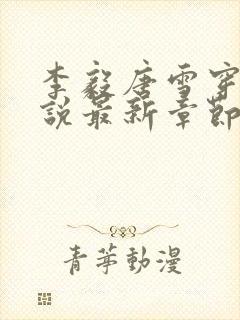 李毅唐雪穿
说最新章節
青苹動漫